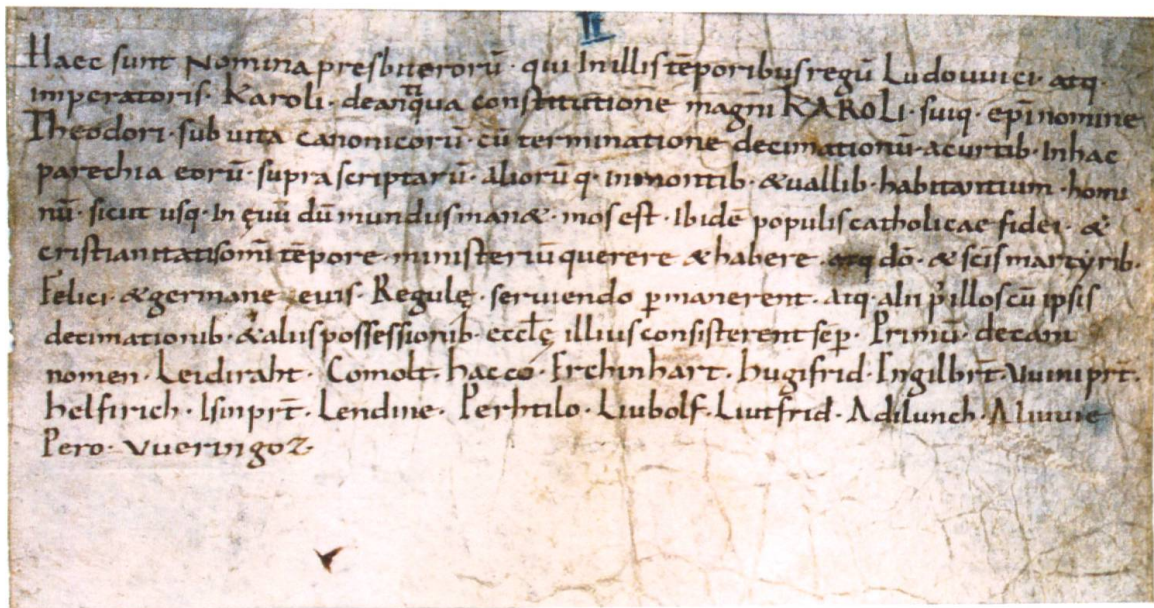 II
Haec sunt Nomina presbiterorū · qui Inillis tēporibus regū Ludouuici · atq
imperatoris · Karoli · deantiqua constitutione magni KAROLI · suiq · epī nomine
Theodori · sub uita canonicorū · cū terminatione decimationū · acurtib · Inhac
parechia eorū · supra scriptarū · aliorū q · Inmontib · & uallib · habitantium · homi
nū · sicut usq · In ęuū dū mundus man& · mos est · Ibidē populis catholicae fidei · &
cristianitatis omī tēpore · ministeriū querere & habere · atq dō · & scīs martyrib ·
Felici · & germane eius · Regulę · seruiendo ꝑmanerent · Atq · alii p illos cū ipsis
decimationib · & aliis possessionib · ecclę illius consisterent sēp · Primū · decani
nomen · Leidiraht · Comolt · hacco · Erchinhart · hugifrid · Engilbrt̄ · Uuiniprt ·
helfirich · Isinprt̄ · Lendine · Perhtilo · Liubolf · Liutfrid · Adilunch · Aluuie
Pero · Vueringoz ·